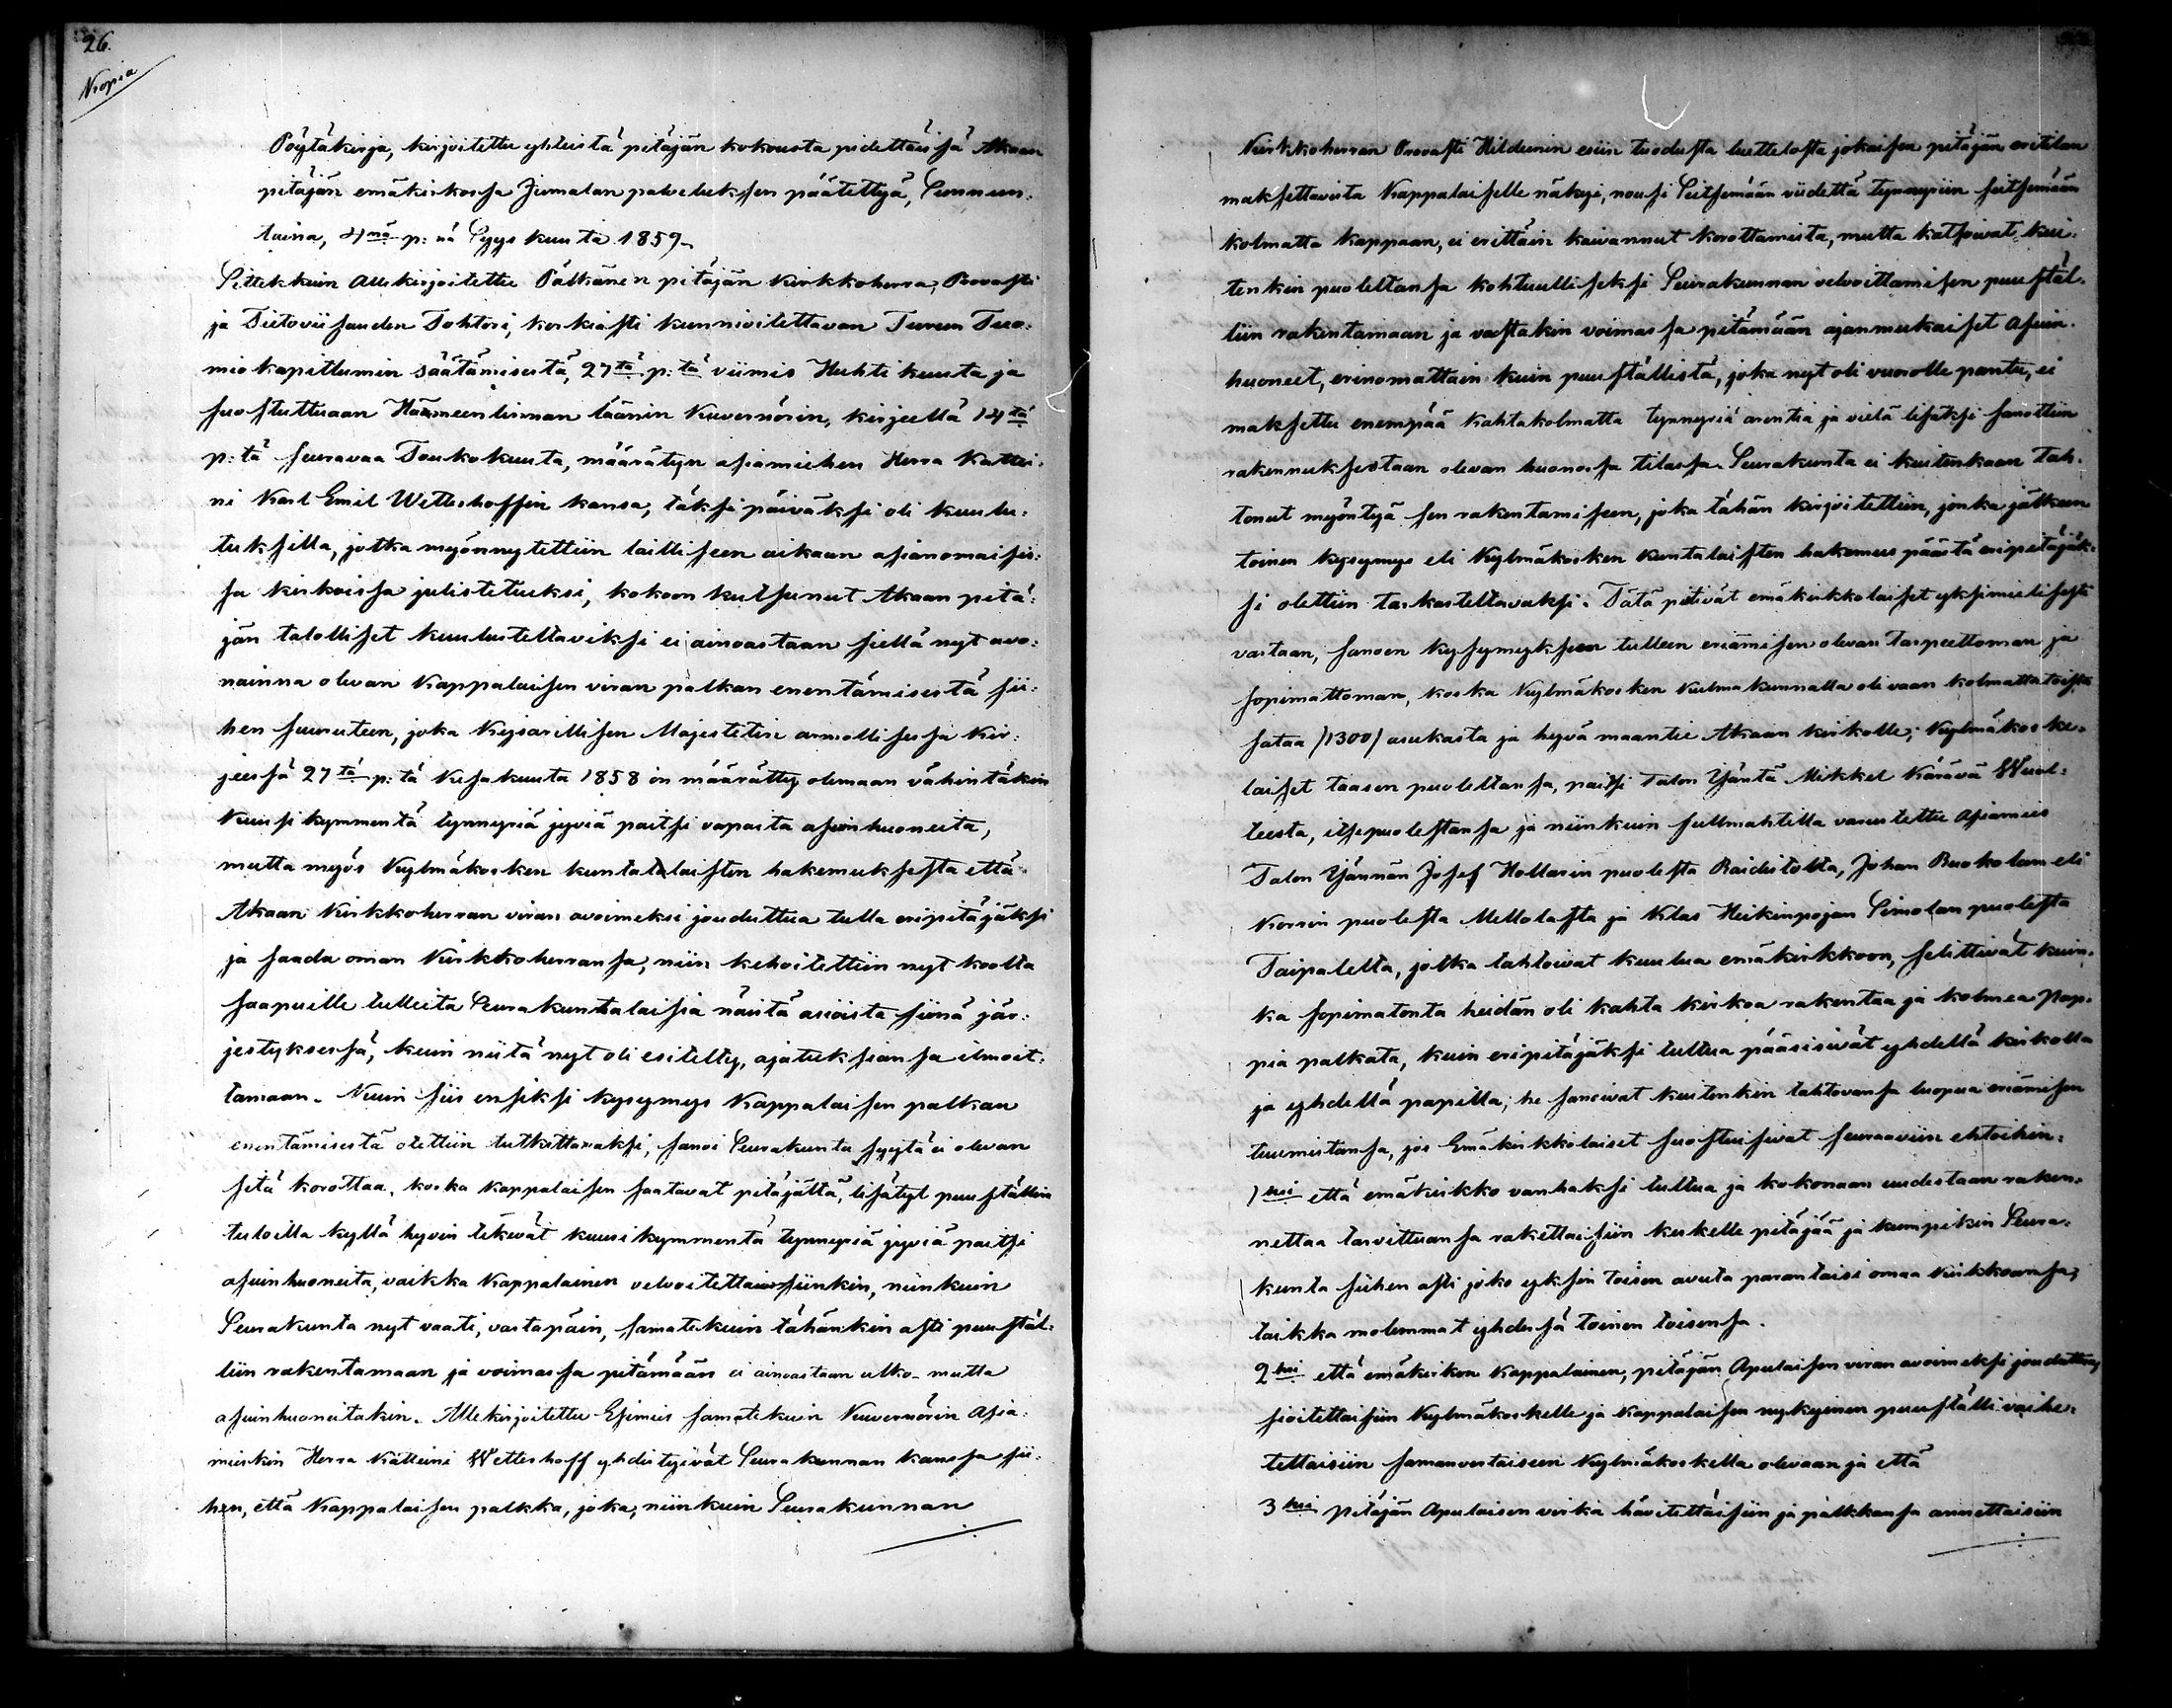 26.
Kopia
Pöytäkirja, kirjoitettu yhteistä pitäjän kokousta pidettäissä Akaan
pitäjän emäkirkossa Jumalan palveluksen päätettyä, Sunnun-
taina, 4nä p:nä Syyskuuta 1859.
Sittekkuin allekirjoitettu Pälkänen pitäjän Kirkkoherra, Provasti
ja Tietoviisauden Tohtori, korkiasti kunnioitettavan Turun Tuo-
miokapitlumin säätämisestä, 27tä p:tä viimis Huhtikuuta ja
suostuttuaan Häämeenlinnan läänin Kuvernörin, kirjeellä 14tä
p:tä seuravaa Toukokuuta, määrätyn asiamiehen Herra Kattei-
ni Karl Emil Wetterhoffin kansa, täksi päiväksi oli kuulu-
tuksilla, jotka myönnytettiin lailliseen aikaan asianomaisis-
sa kirkoissa julistetuksi, kokoon kutsunut Akaan pitä-
jän talolliset kuulusteltaviksi ei ainoastaan siellä nyt avo-
nainna olevan Kappalaisen viran palkan enentämisestä sii-
hen suuruteen, joka Keisarillisen Majestetin armollisessa Kir-
jeessä 27tä p:tä Kesäkuuta 1858 on määrätty olemaan vähintäkin
Kuusikymmentä tynnyriä jyviä paitsi vapaita asuinhuoneita,
mutta myös Kylmäkosken kuntalaisten hakemuksesta että
Akaan Kirkkoherran viran avoimeksi jouduttua tulla eripitäjäksi
ja saada oman Kirkkoherransa, niin kehoitettiin nyt koolta
saapuille tulleita Seurakuntalaisia näistä asioista siinä jär-
jestyksessä, kuin niitä nyt oli esitelty, ajatuksiansa ilmoit-
tamaan. Kuin siis ensiksi kysymys Kappalaisen palkan
enentämisestä otettiin tutkittavaksi, sanoi Seurakunta syytä ei olevan
sitä korottaa, koska Kappalaisen saatavat pitäjältä, lisätyt puuställin
tuloilla kyllä hyvin tekevät kuusikymmentä tynnyriä jyviä paitsi
asuinhuoneita, vaikka Kappalainen velvoitettaisiinkin, niinkuin
Seurakunta nyt vaati, vastapäin, samatekuin tähänkin asti puustäl-
liin rakentamaan ja voimassa pitämään ei ainoastaan ulko- mutta
asuinhuoneitakin. Allekirjoitettu Esimies samatekuin Kuvernörin Asia-
mieskin Herra Kätteini Wetterhoff yhdistyivät Seurakunnan kanssa sii-
hen, että Kappalaisen palkka, joka, niinkuin Seurakunnan
Kirkkoherran Provasti Hildeenin esiin tuodusta luettelosta jokaisen pitäjän eritilan
maksettavista Kappalaiselle näkyi, nousi Seitsemään viidettä tynnyriin seitsemään
kolmatta kappaan, ei erittäin kaivannut korottamista, mutta katsoivat kui-
tenkin puolettansa kohtuulliseksi Seurakunnan velvoittamisen puustäl-
liin rakentamaan ja vastakin voimassa pitämään ajanmukaiset asuin-
huoneet, erinomattain kuin puuställistä, joka nyt oli vuorolle pantu, ei
maksettu enempää kahtakolmatta tynnyriä arentia ja vielä lisäksi sanottiin
rakennuksestaan olevan huonossa tilassa. Seurakunta ei kuitenkaan tah-
tonut myöntyä sen rakentamiseen, joka tähän kirjoitettiin, jonka jälkeen
toinen kysymys eli Kylmäkosken kuntalaisten hakemus päästä eripitäjäk-
si olettiin tarkasteltavaksi. Tätä pitivät emäkirkkolaiset yksimielisesti
vastaan, sanoen kysymykseen tulleen eriämisen olevan tarpeettoman ja
sopimattoman, koska Kylmäkosken Kulmakunnalla oli vaan kolmattatoista
sataa /1300/ asukasta ja hyvä maantie Akaan kirkolle; Kylmäkoske-
laiset taasen puolettansa, paitsi Talon Isäntä Mikkel Kärävä Wual-
teesta, itsepuolestansa ja niinkuin fullmahtilla varustettu Asiamies
Talon Isännän Josef Hollarin puolesta Raiduitolta, Johan Ruokolan eli
Korrin puolesta Mellolasta ja Klas Heikinpojan Simolan puolesta
Taipaleelta, jotka tahtoivat kuulua emäkirkkoon, selittivät kuin-
ka sopimatonta heidän oli kahta kirkoa rakentaa ja kolmea pap-
pia palkata, kuin eripitäjäksi tultua pääsisivät yhdellä kirkolla
ja yhdellä papilla; he sanoivat kuitenkin tahtovansa luopua eriämisen
tuumistansa, jos Emäkirkkolaiset suostuisivat seuraaviin ehtoihin:
1ksi että emäkirkko vanhaksi tultua ja kokonaan uudestaan raken-
nettaa tarvittuansa rakettaisiin keskelle pitäjää ja kumpikin Seura-
kunta siihen asti joko yksin toisen avuta parantaisi omaa Kirkkoansa,
taikka molemmat yhdessä toinen toisensa.
2ksi että emäkirkon Kappalainen, pitäjän Apulaisen viran avoimeksi jouduttua,
sioitettaisiin Kylmäkoskelle ja Kappalaisen nykyinen puuställi vaihe-
tettaisiin samanvertaiseen Kylmäkoskella olevaan ja että
3ksi pitäjän Apulaisen virka hävitettäisiin ja palkkansa annettaisiin